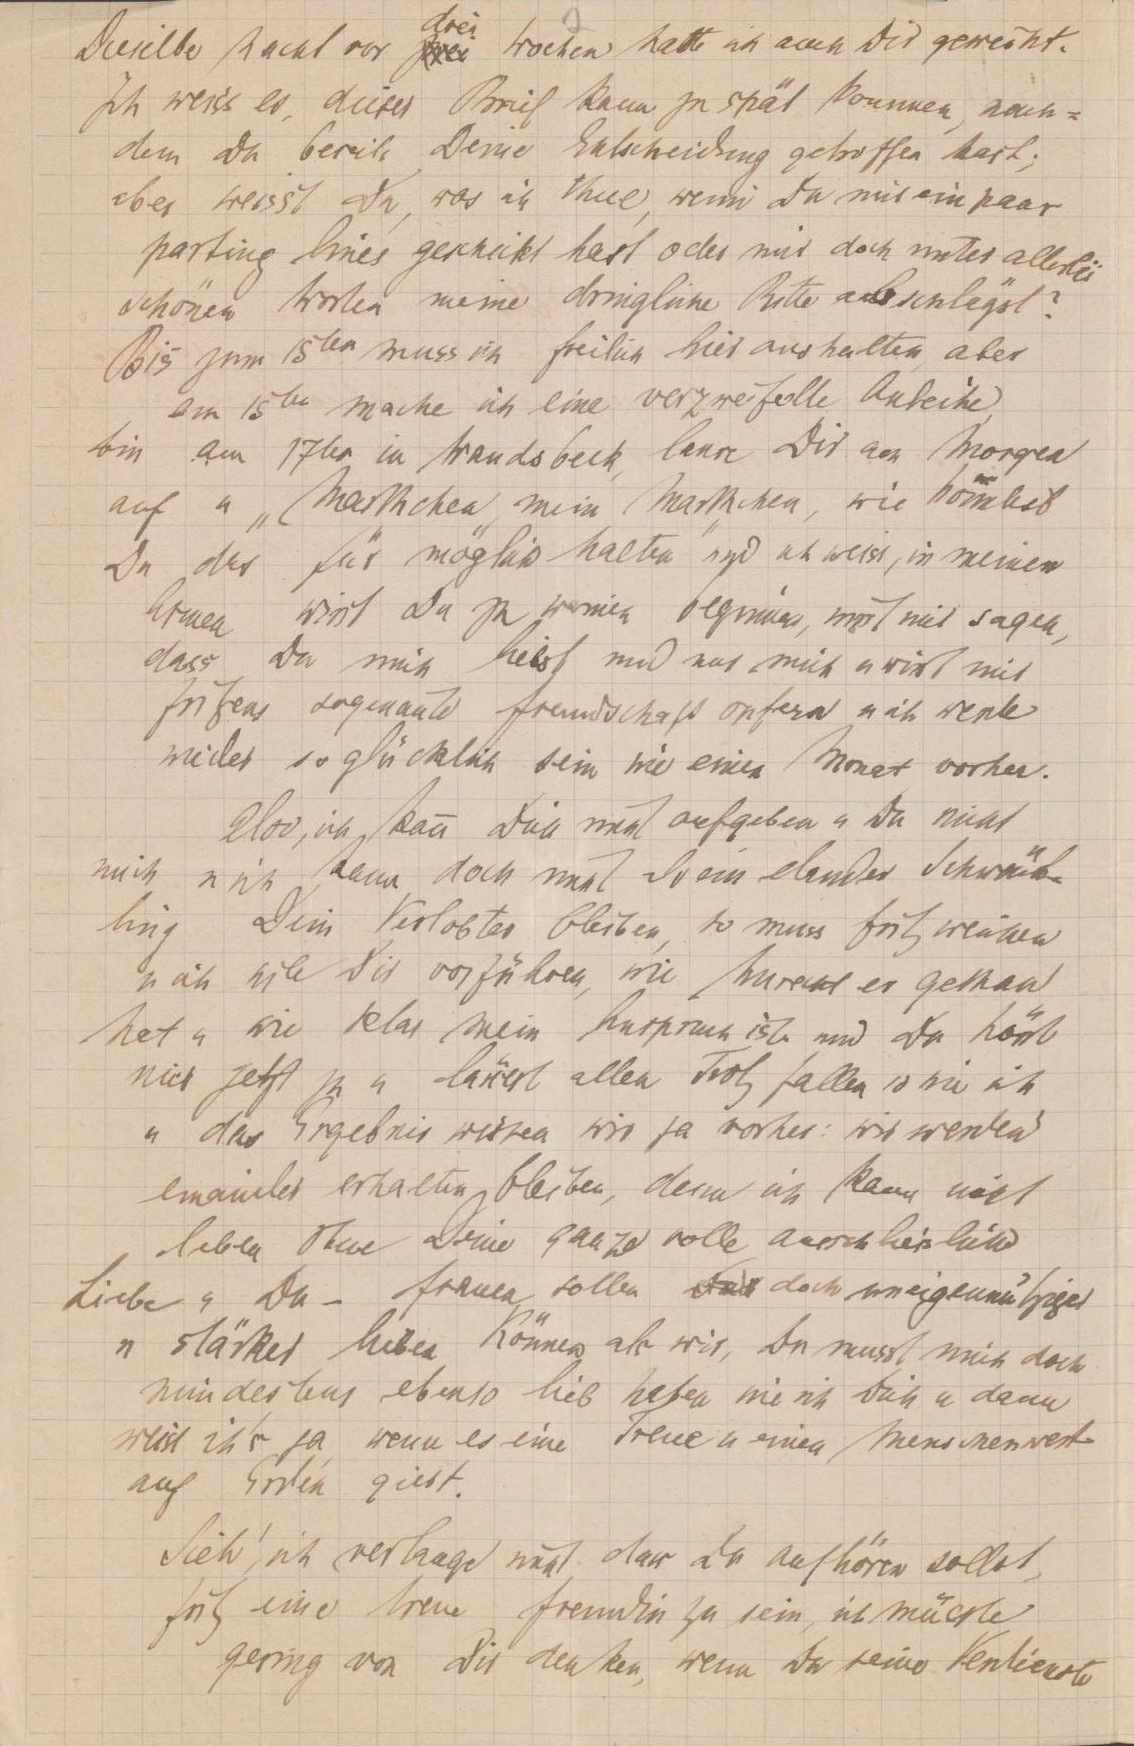 Dieselbe Nacht vor drei Wochen hatte ich auch Dir geweiht.
Ich weiss es, dieser Brief kann zu spät kommen, nach=
dem Du bereits Deine Entscheidung getroffen hast;
aber weisst Du, was ich thue, wenn Du mir ein paar
parting lines geschickt hast oder mir doch unter allerlei
schönen Worten meine dringliche Bitte abschlägst?
Bis zum 15ten muss ich freilich hier aushalten, aber
am 15ten mache ich eine verzweifelte Anleihe,
bin am 17ten in Wandsbeck, laure Dir am Morgen
auf u „Marthchen, mein Marthchen, wie konntest
Du das für möglich halten" und ich weiss, in meinen
Armen wirst Du zu weinen beginnen, wirst mir sagen,
dass Du mich liebst und nur mich u wirst mir
Fritzens sogenannte Freundschaft opfern u ich werde
wieder so glücklich sein wie einen Monat vorher.
Also, ich kann Dich nicht aufgeben u Du nicht
mich u ich kann doch nicht so ein elender Schwäch-
ling Dein Verlobter bleiben, so muss Fritz weichen
u ich will Dir vorführen, wie Unrecht er gethan
hat u wie klar mein Anspruch ist und Du hörst
mir jetzt zu u lässest allen Trotz fallen so wie ich
u das Ergebnis wissen wir ja vorher: wir werden
einander erhalten bleiben, denn ich kann nicht
leben ohne Deine ganze volle ausschliesliche
Liebe u Du – Frauen sollen doch uneigennütziger
u stärker lieben können als wir, Du musst mich doch
mindestens ebenso lieb haben wie ich Dich u dann
weiss ich's ja, wenn es eine Treue u einen Menschenwert
auf Erden giebt.
Sieh', ich verlange nicht dass Du aufhören sollst,
Fritz eine treue Freundin zu sein, ich müsste
gering von Dir denken, wenn Du seine Verdienste